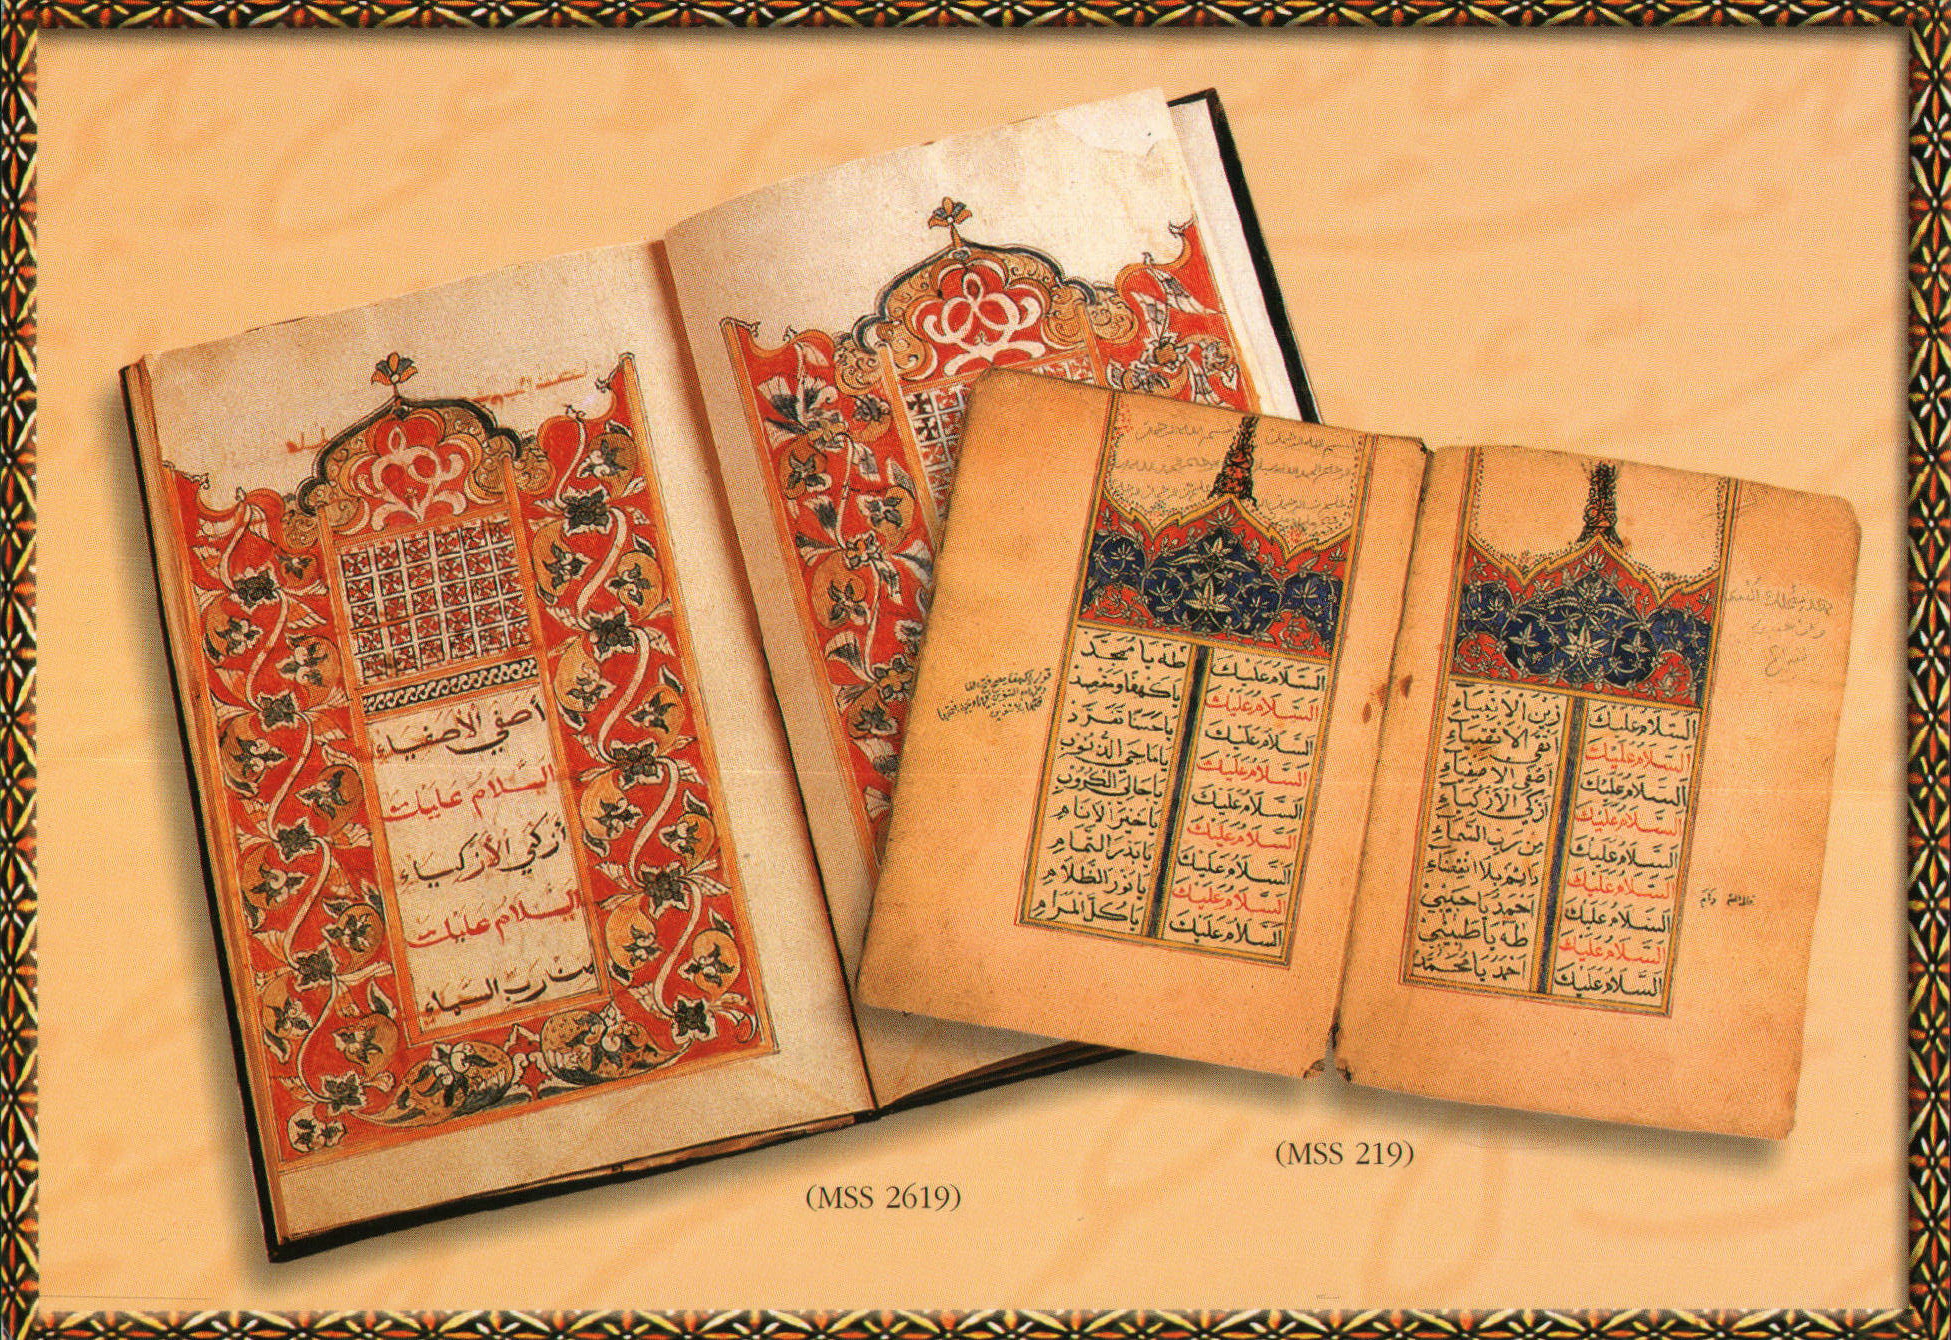 أصفي الأصفياء
السلام عليك
أزكي الأزكياء
السلام عليك
من رب السماء
السلام عليك زين الانبياء
السلام عليك اتقي الاتقياء
السلام عليك اصفي الاصفياء
السلام عليك ازكي الازكياء
السلام عليك من رب السماء
السلام عليك دايم بلا انقضاء
السلام عليك احمد يا حبيبي
السلام عليك طه يا طبيبي
السلام عليك احمد يا محمد
السلام عليك طه يا محمد
السلام عليك يا كهفا ومقصد
السلام عليك يا حسنا تفرد
السلام عليك يا ماحي الذنوب
السلام عليك يا جالي الكروب
السلام عليك يا خير الانام
السلام عليك يا بدر التمام
السلام عليك يا نور الظلام
السلام عليك يا كل المرام
(MSS 2619)
(MSS 219)